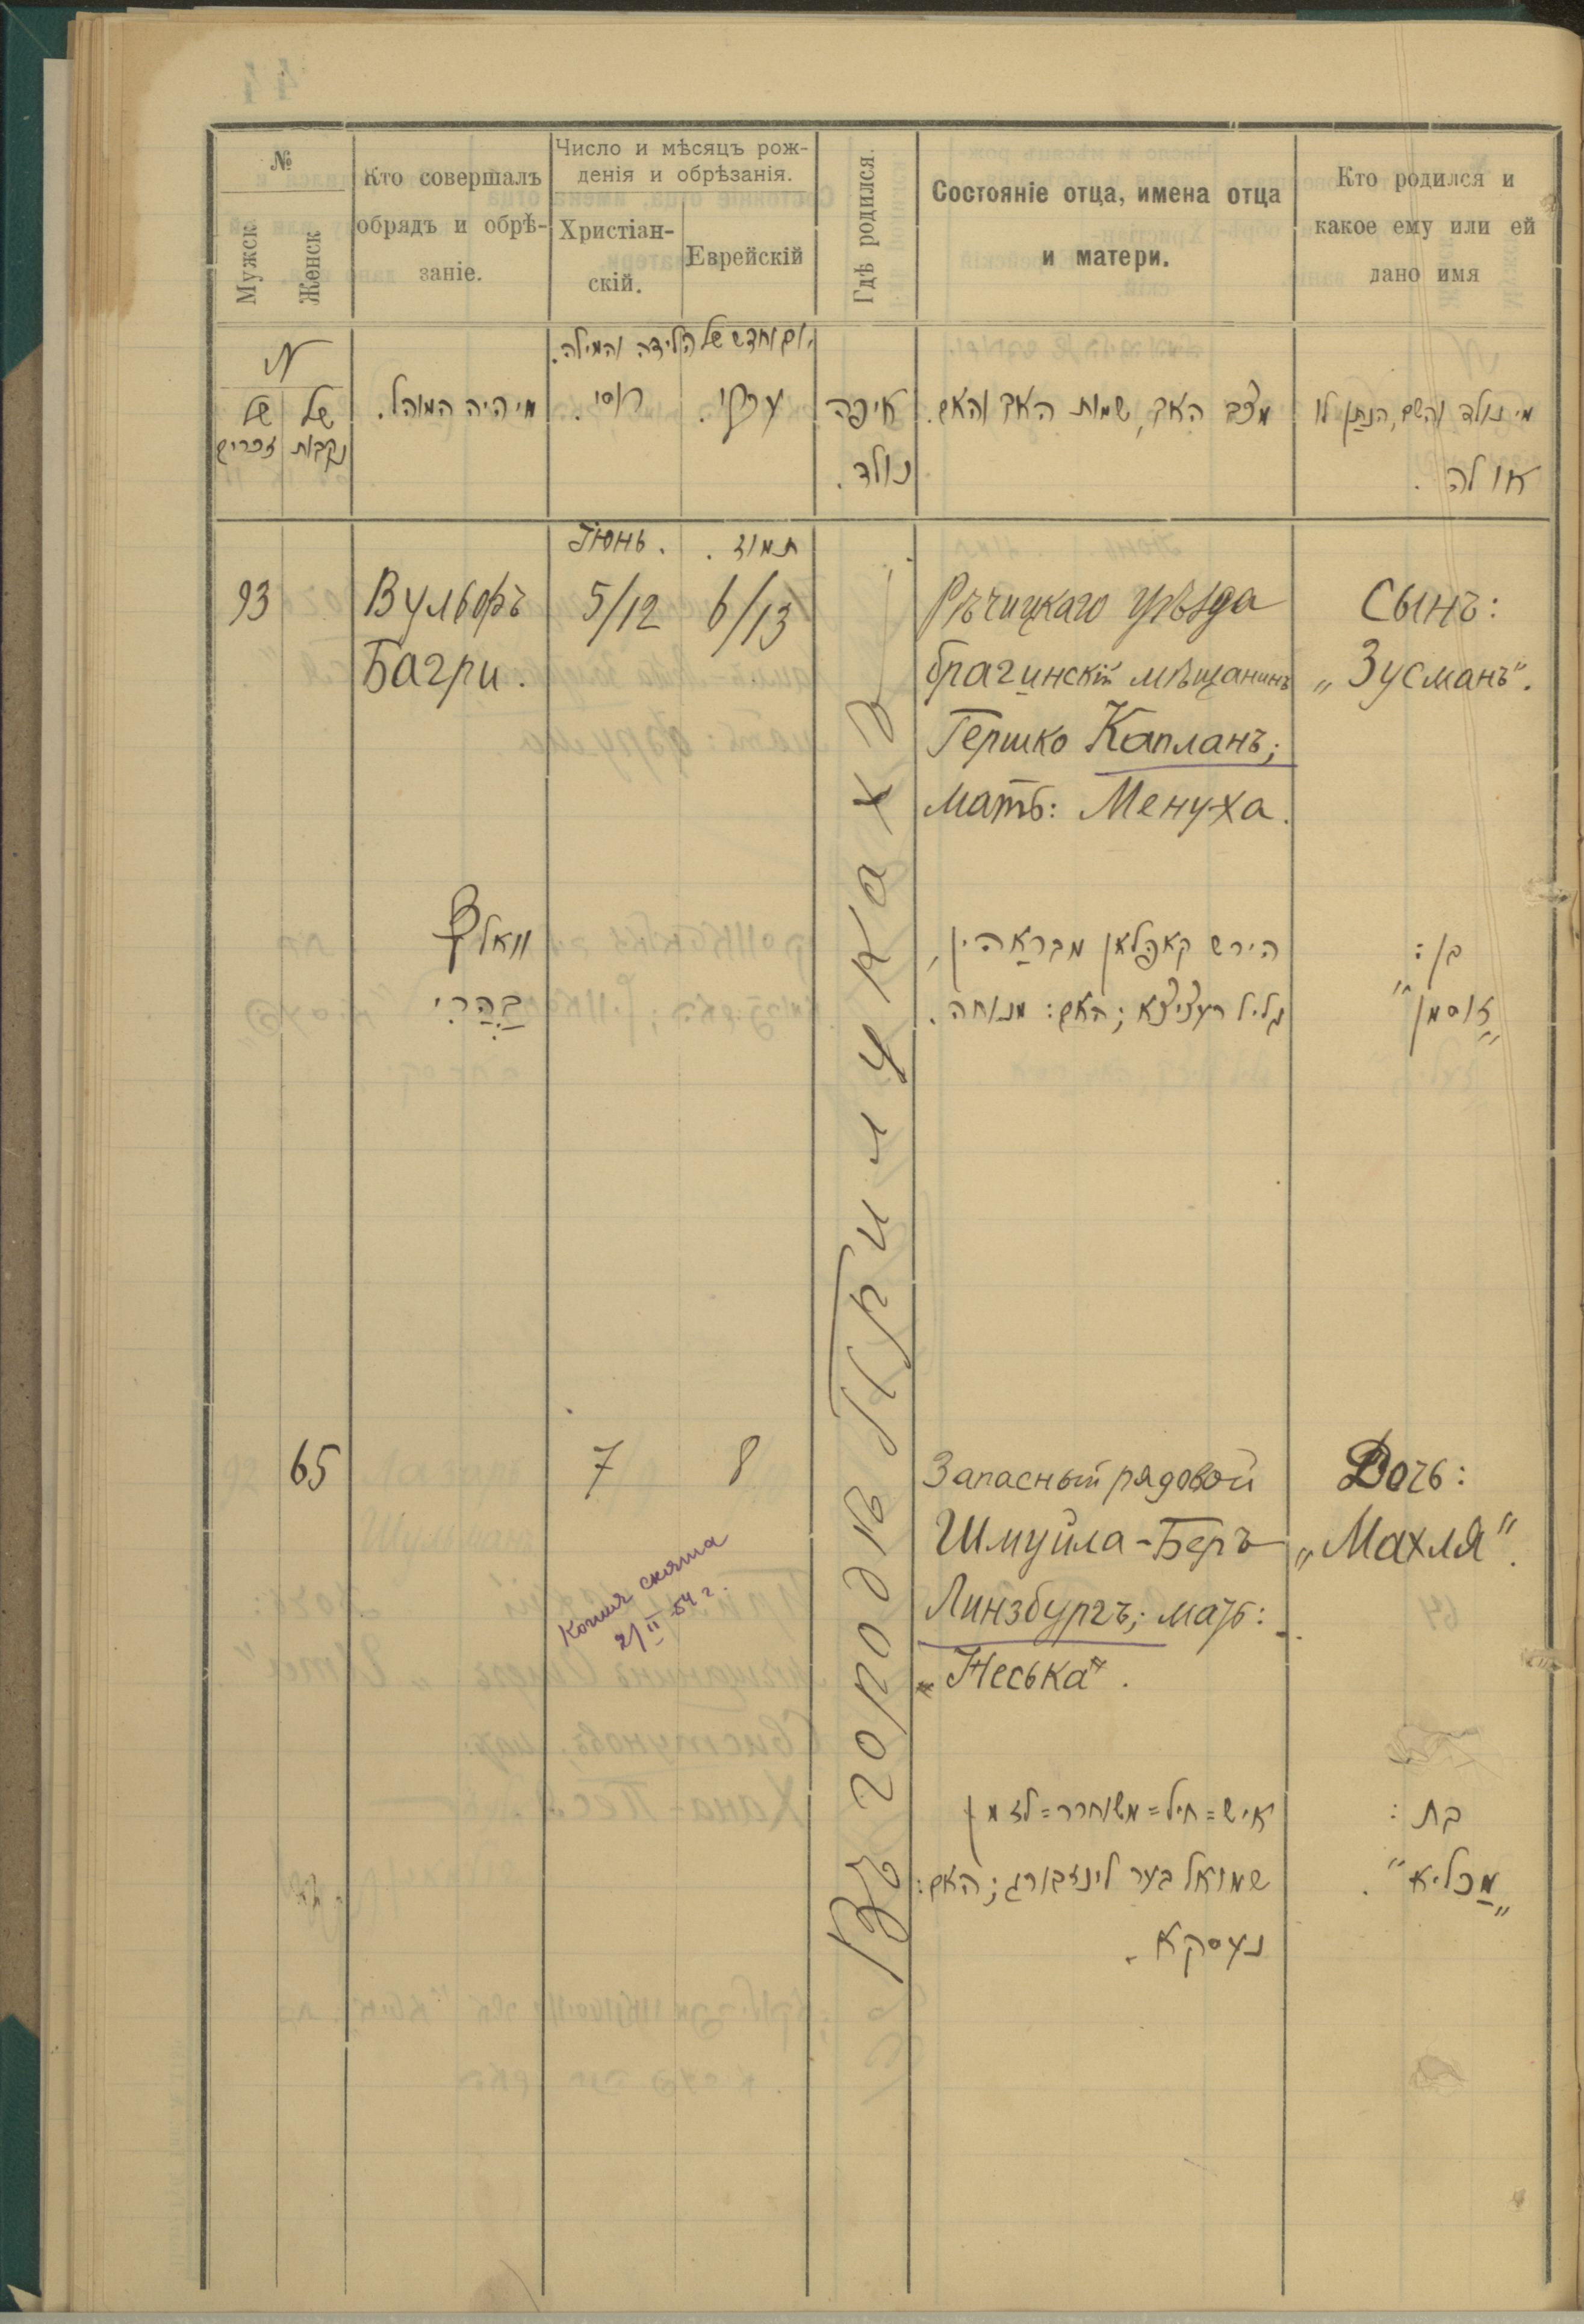 №
Мужск
Женск
Кто совершалъ
обрядъ и обрѣ-
заніе.
Число и мѣсяцъ рож-
денія и обрѣзанія.
Христіан-
скій.
Еврейскій
Гдѣ родился.
Состояніе отца, имена отца
и матери.
Кто родился и
какое ему или ей
дано имя
N
של זכרים
של נקבות
מי היה המוהל.
יום וחדש של הלידה והמילה.
רוסי.
עברי.
איפה
נולד.
מצב האב, שמות האב והאם.
מי נולד והשם, הנתן לו
או לה.
Іюнь.
תמוז.
93
Вульфъ
Багри.
5/12
6/13
Рѣчицкаго уѣзда
брагинскій мѣщанинъ
Гершко Капланъ;
мать: Менуха.
Сынъ:
„Зусманъ".
וואלף
בַהַרי
הירש קאפלאן מבראהין,
גליל רעציצא; האם: מנוחה.
בן:
„זוסמן"
Въ городѣ Прилукахъ
65
7
8
Запасный рядовой
Шмуйла-Беръ
Линзбургъ; мать:
„Неська".
Дочь:
„Махля".
Копия снята
2/II-54 г.
איש=חיל=משוחרר=לזמן
שמואל בער לינזבורג; האם:
נעסקא.
בת:
„מַכליא".